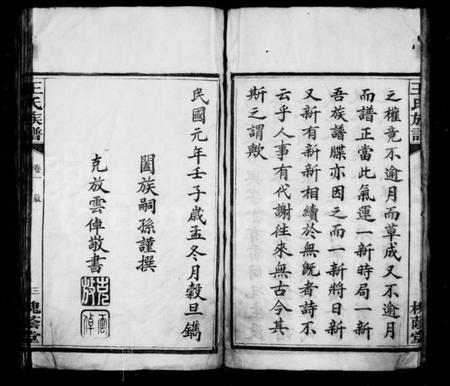 王氏族譜
槐蔭堂
之權竟不逾月而草成又不逾月
而譜正當此氣運一新時局一新
吾族譜牒亦因之而一新將日新
又新有新新相續於無旣者詩不
云乎人事有代謝往來無古今其
斯之謂歟
民國元年壬子歲孟冬月穀旦鐫
闔族嗣孫謹撰
克放雲倬敬書
克放
雲倬
王氏族譜
卷一
敍
三
槐蔭堂